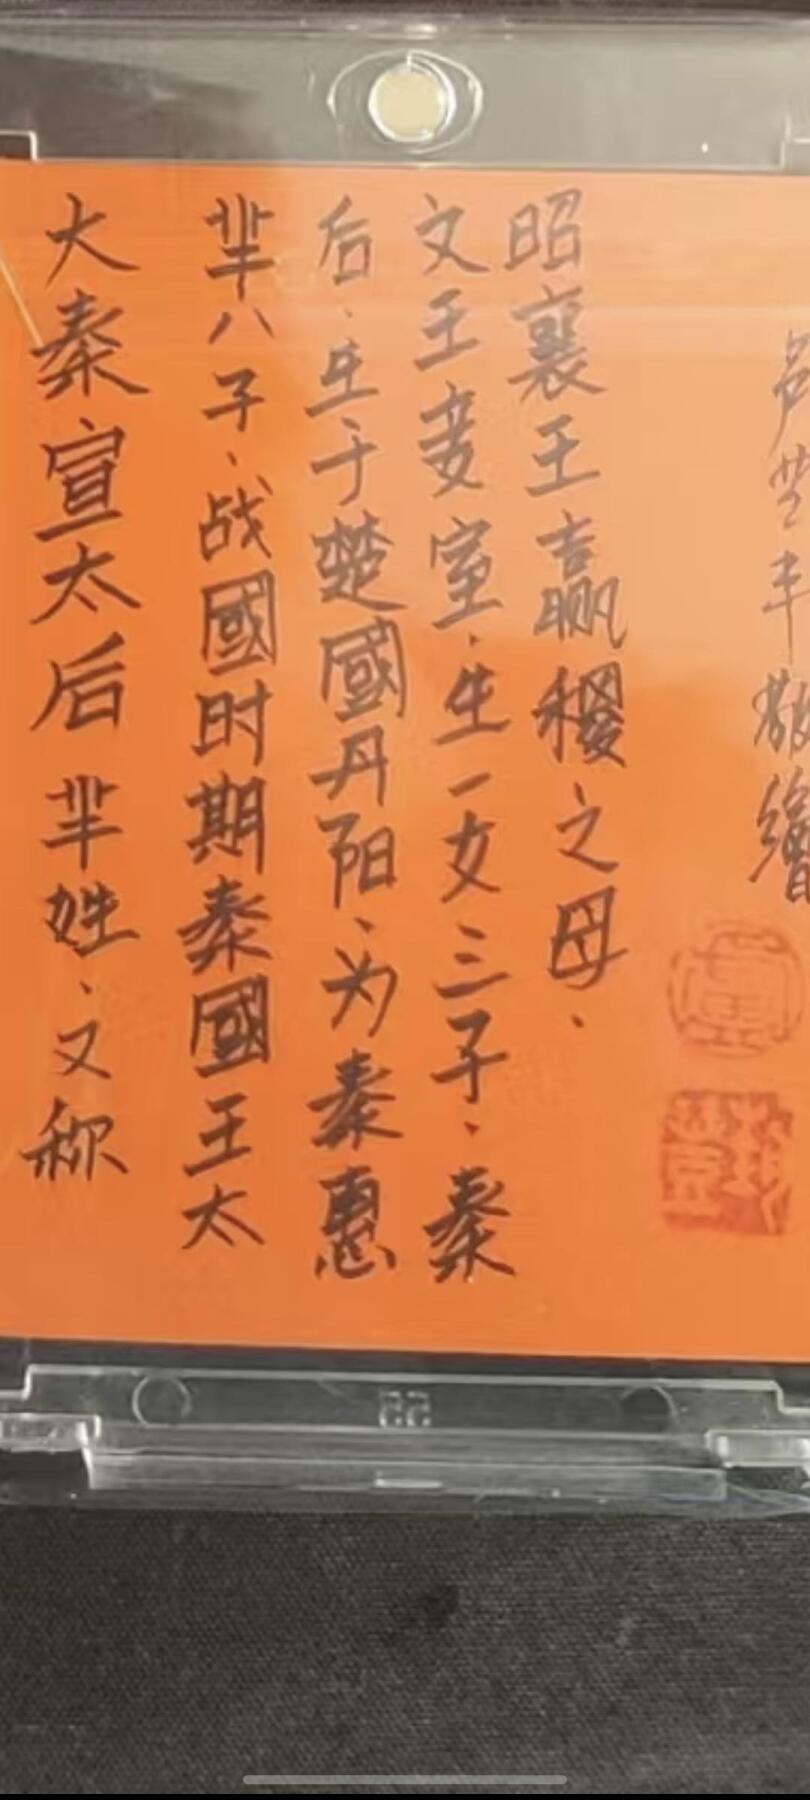 大秦宣太后 芈姓、又称
芈八子、战國时期秦國王太
后、生于楚國丹阳、为秦惠
文王妾室、生一女三子、秦
昭襄王赢稷之母、
丰敬繪
55